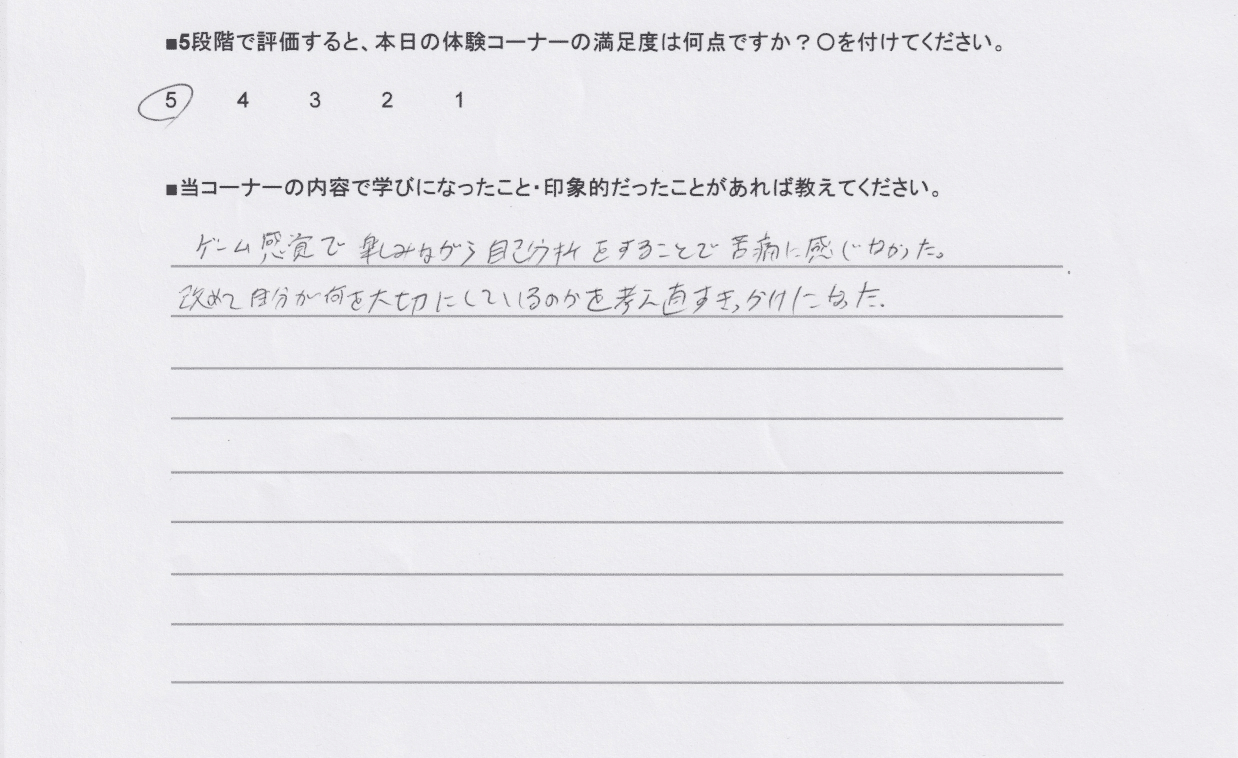 ■5段階で評価すると、本日の体験コーナーの満足度は何点ですか？〇を付けてください。
5 4 3 2 1
■当コーナーの内容で学びになったこと・印象的だったことがあれば教えてください。
ゲーム感覚で楽しみながら自己分析をすることで苦痛に感じなかった。
改めて自分が何を大切にしているのかを考え直すきっかけになった。